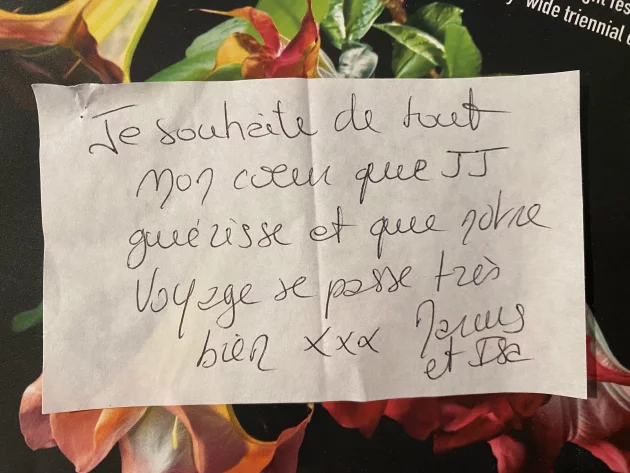 wide triennial
Je souhaite de tout
mon coeur que JJ
guérisse et que notre
voyage se passe très
bien xxx
et Isa